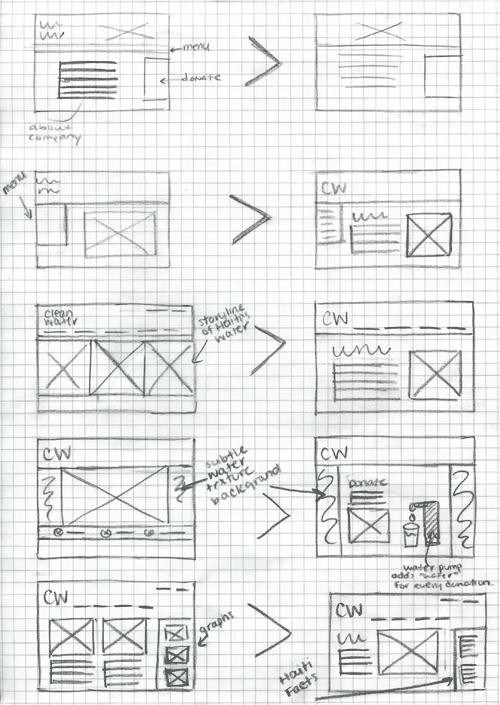 menu
donate
about
company
menu
CW
clean
water
storyline
of Haiti's
water
CW
CW
subtle
water
texture
background
CW
Donate
water pump
adds "water"
for every donation.
CW
graphs
CW
Haiti
Facts